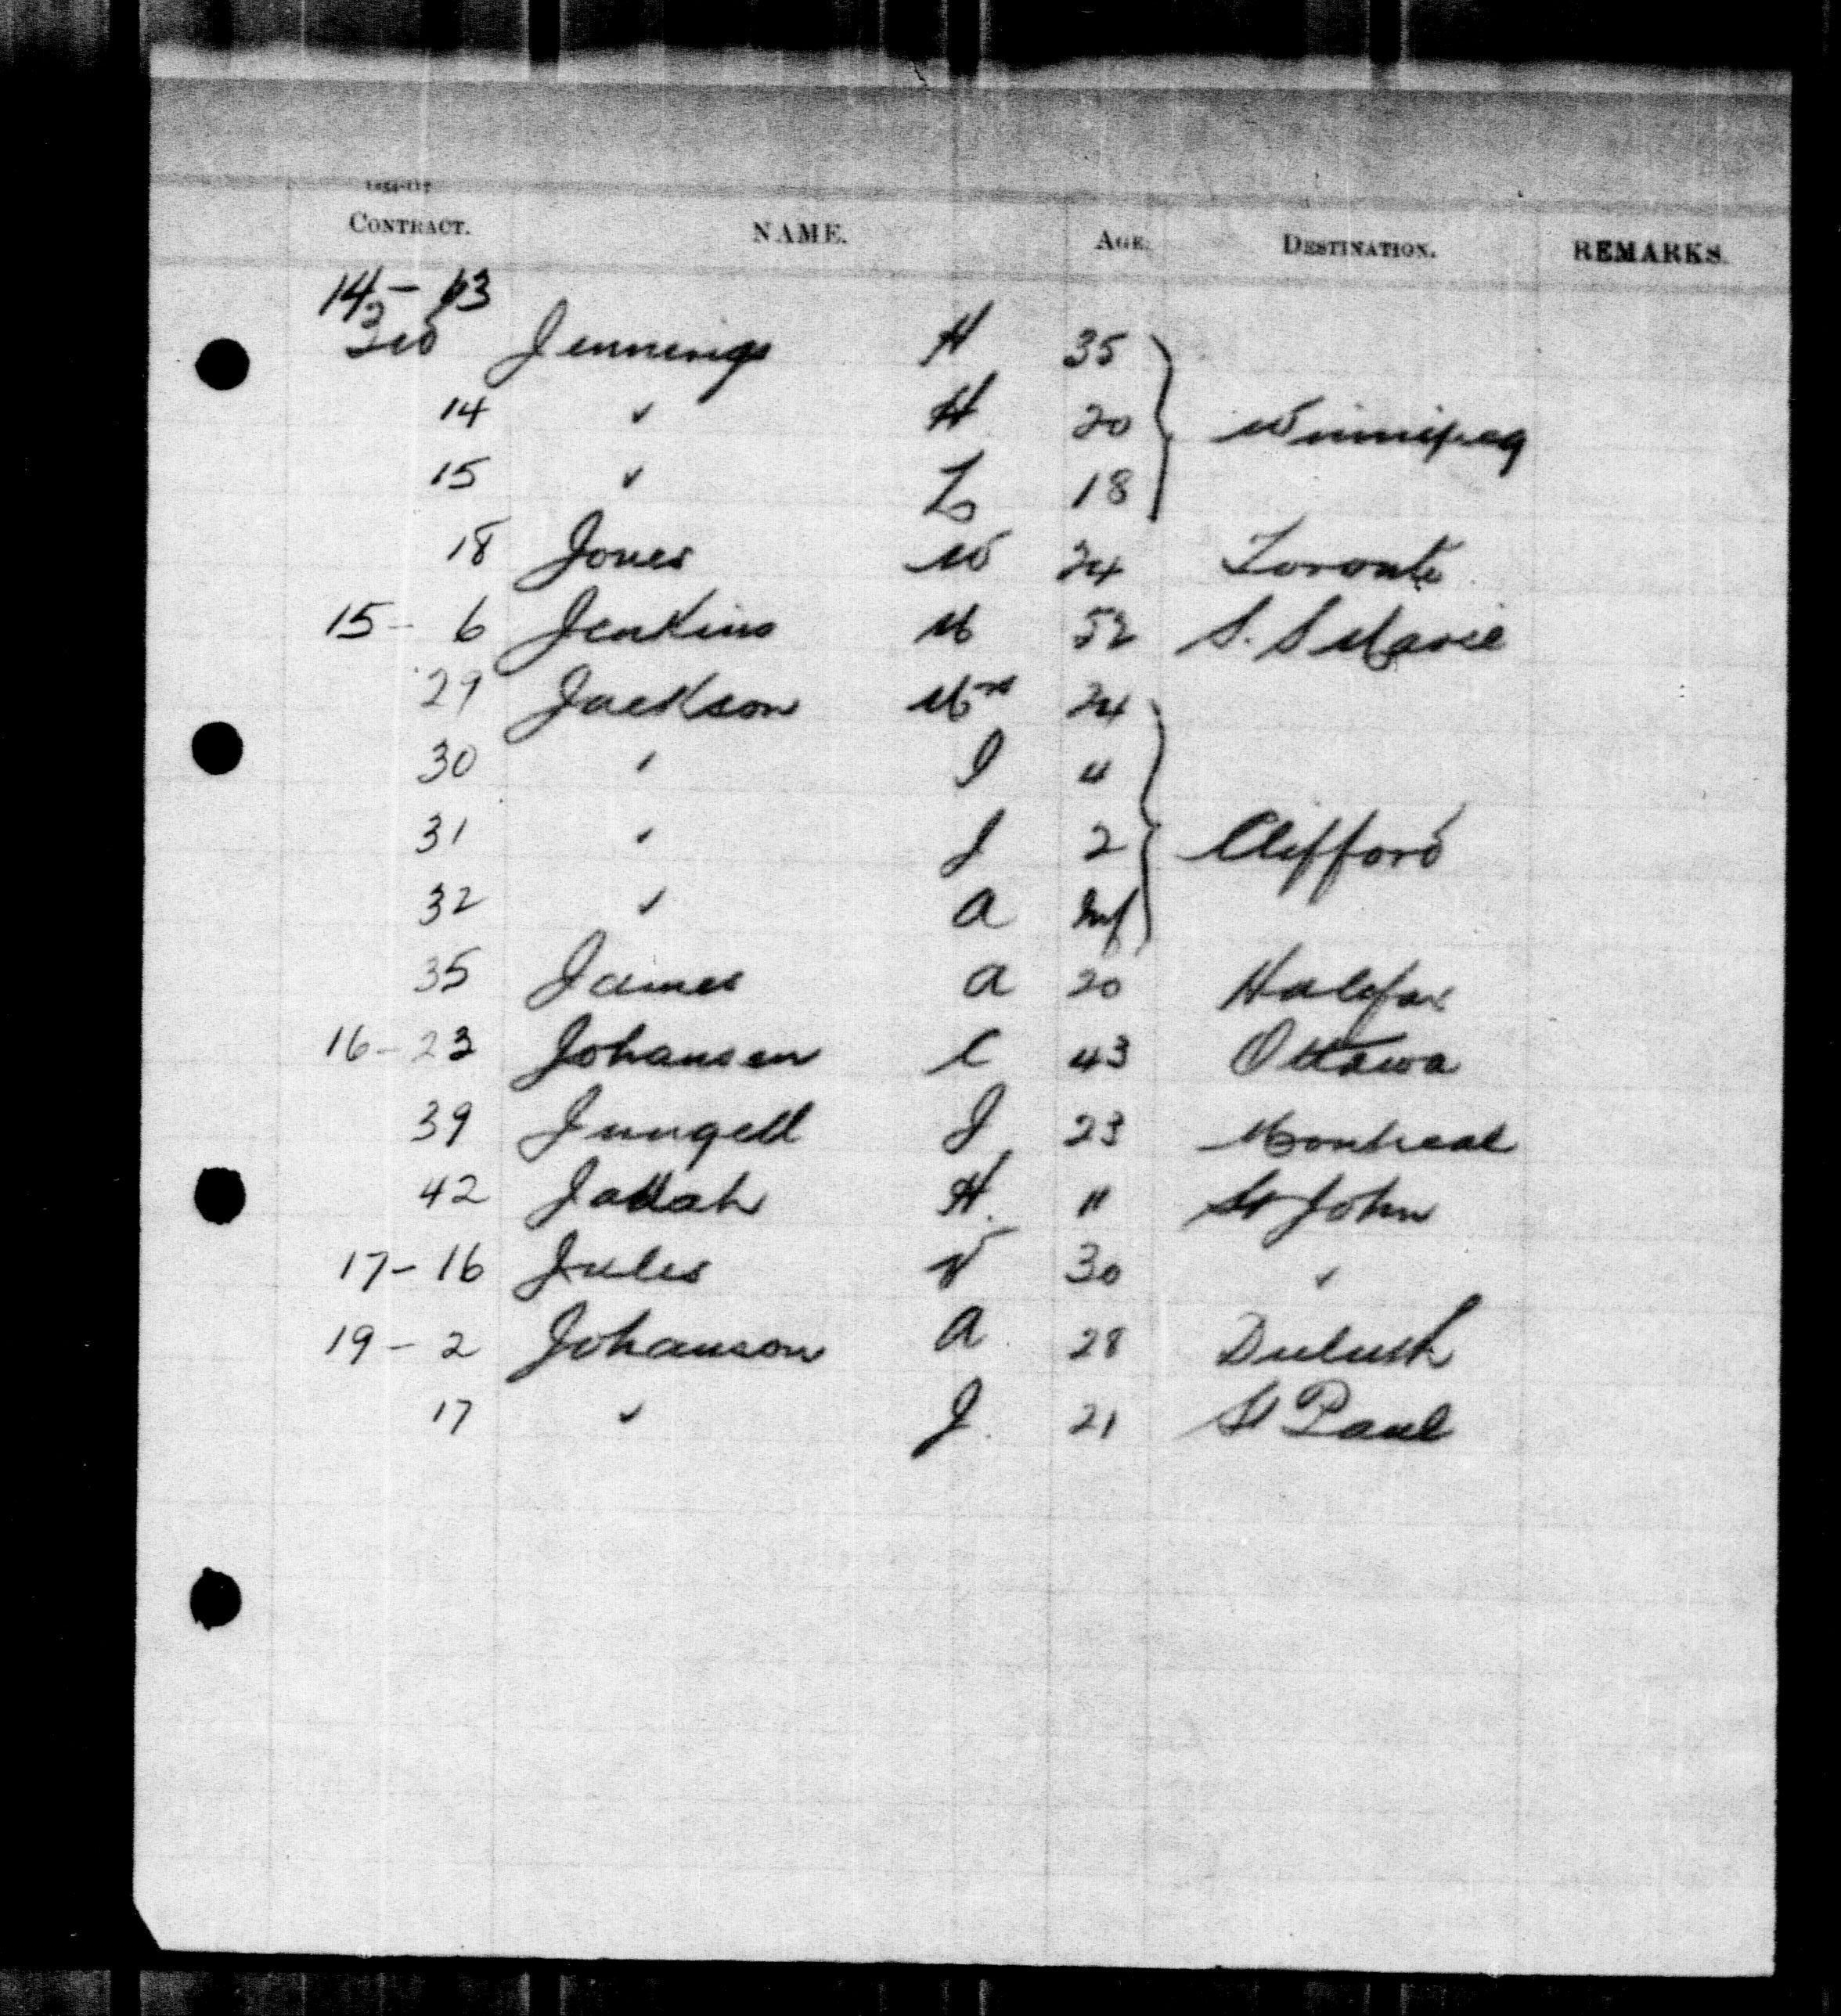 CONTRACT. NAME. AGE. DESTINATION. REMARKS.
14 - 13
Jennings H 35
14 " H 20 Winnipeg
15 " L 18
18 Jones W 24 Toronto
15 - 6 Jenkins M 52 S. S Marie
29 Jackson Mrs 24
30 " I 4
31 " J 2 Clifford
32 " A Inf
35 James A 20 Halifax
16 - 23 Johansen C 43 Ottawa
39 Jungell J 23 Montreal
42 H. 11 St John
17 - 16 Jules V 30 "
19 - 2 Johanson A. 28 Duluth
17 " J. 21 St Paul